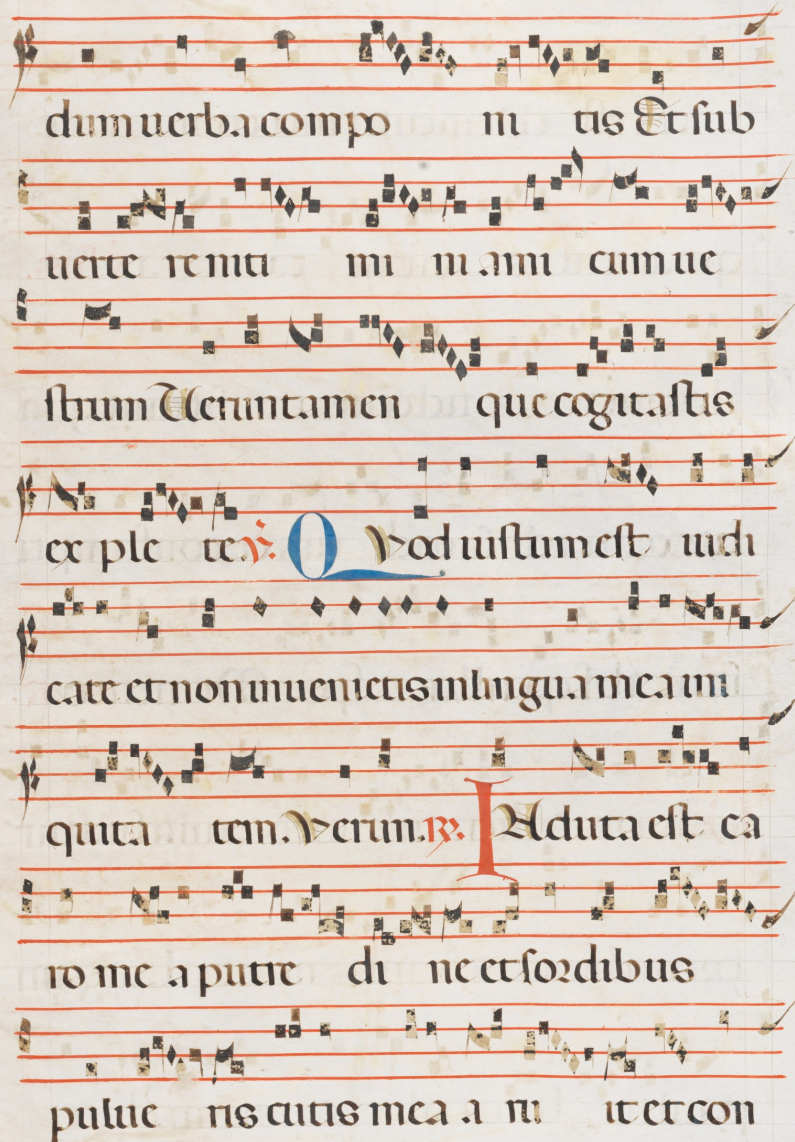 dum uerba compo ni tis Et sub
uerte re niti mi ni ami cum ue
strum Ueruntamen que cogitastis
ex ple te. V. Quod iustum est iudi
cate et non inuenietis in lingua mea ini
quita tem. Uerun. R. Induta est ca
ro me a putre di ne et sordibus
pulue ris cutis mea a ru it et con